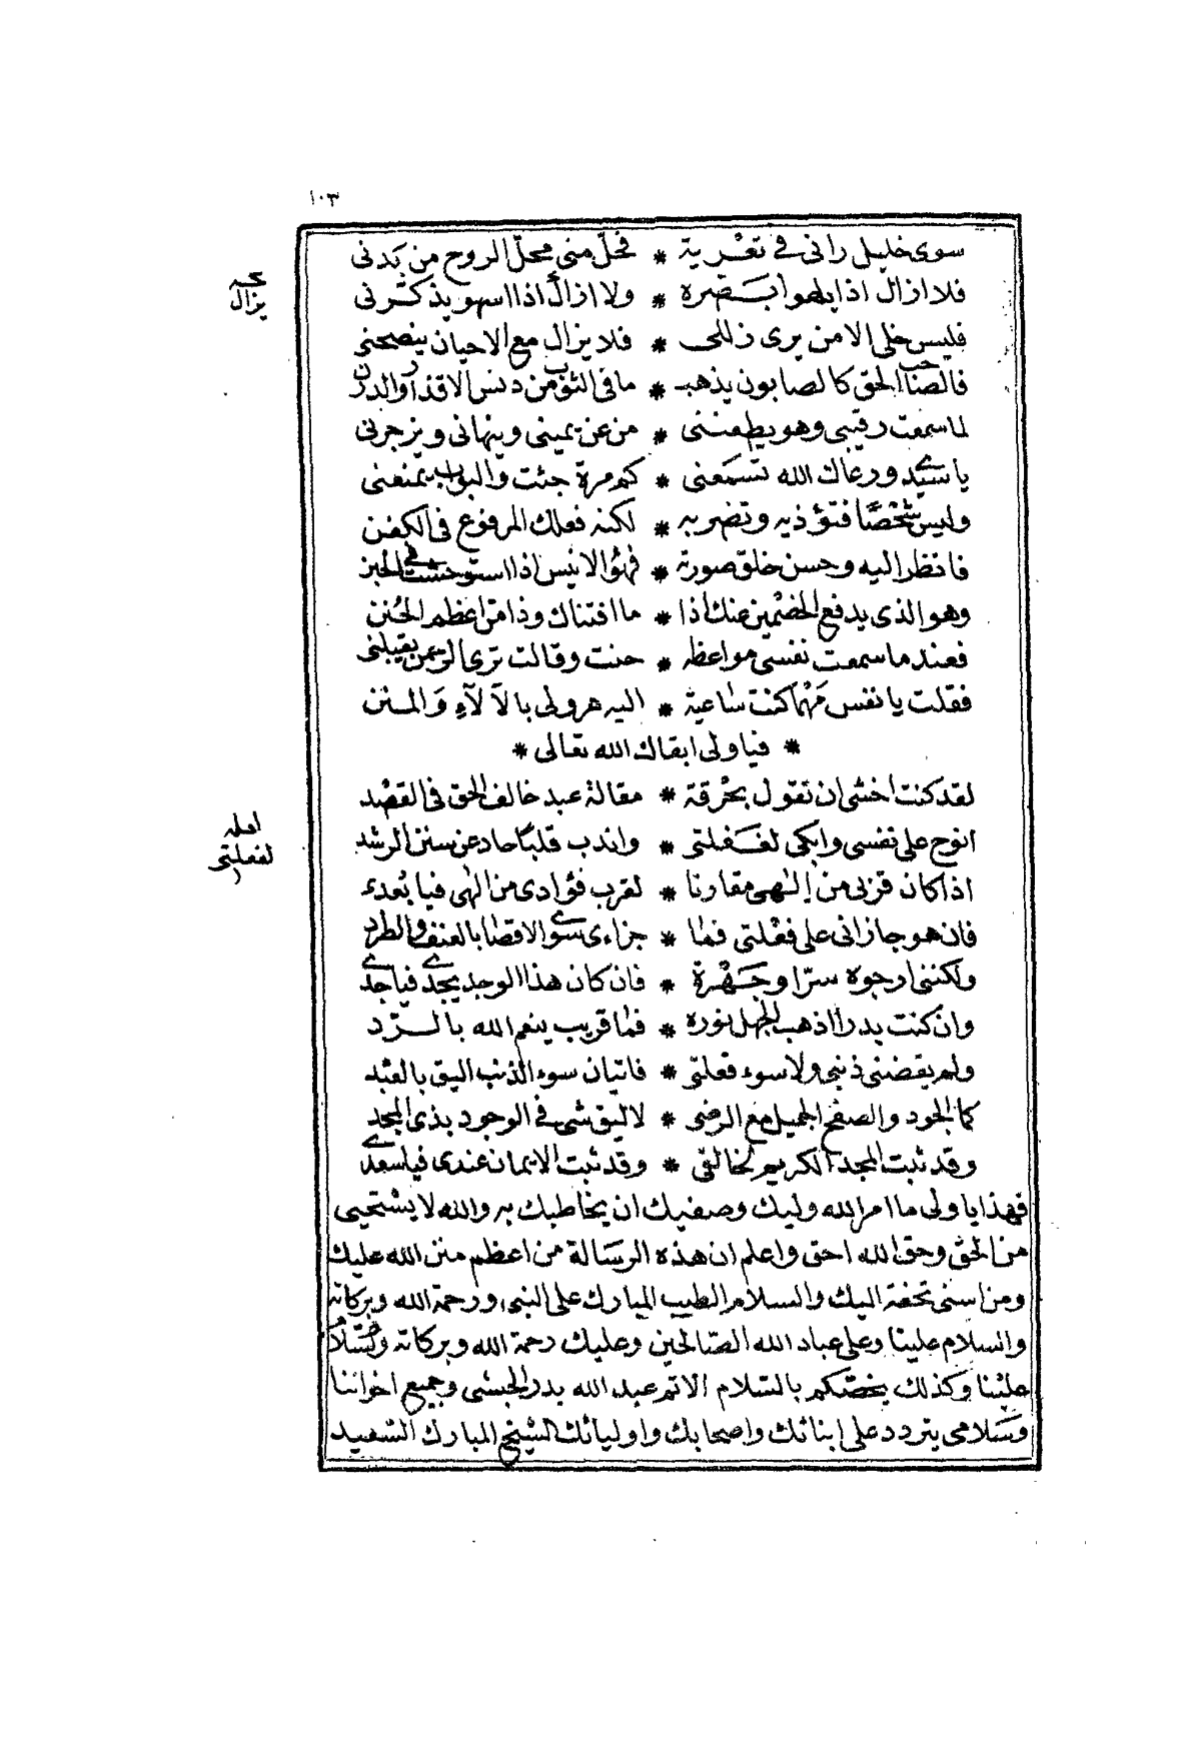 ١٠٣
سوى خليل رانى فى تغريبة * فحلّ منى محلّ الروح من بدنى
فلا ازال اذا يلهو ابصره * ولا ازال اذا اسهو يذكّرنى
يزال
فليس خلى الا من يرى زللى * فلا يزال مع الاحيان ينصحنى
فالصاحب الحق كالصابون يذهب * ما فى الثوب من دنس الاقذار والدرن
لما سمعت رقيبى وهو يطعننى * من عن يمينى وينهانى ويزجرنى
يا سيدى ورعاك الله تسمعنى * كم مرة جئت والبواب يمنعنى
وليس شخصًا فتؤذيه وتضربه * لكنه فعلك المرفوع فى الكفن
فانظر اليه وحسن خلق صورته * فهو الانيس اذا استوحشت فى
وهو الذى يدفع الخصمين عنك اذا * ما افتناك وذا من اعظم
فعند ما سمعت نفسى مواعظه * حنت وقالت ترى الرحمن يقبلنى
فقلت يا نفس مهما كنت ساعية * اليه هرولى بالآلآء والمنن
* فيا ولى ابقاك الله تعالى *
لقد كنت اخشى ان تقول بحرقة * مقالة عبد خالف الحق فى القصد
انوح على نفسى وابكى لغفلتى * واندب قلبًا حاد عن سنن الرشد
لعله
لفعلتى
اذا كان قربى من إلهى مقارنا * لقرب فؤادى من الهى فيا بعدى
فان هو جازانى على فعلتى فما * جزاءى سوى الاقصا بالعنف والطرد
ولكننى ارجوه سرّا وجهرة * فان كان هذا الوجد يجدى فيا جدى
وان كنت بدرا اذهب الجهل نوره * فما قريب ينعم الله بالردّ
ولم يقضنى ذنبى ولا سوء فعلتى * فاتيان سوء الذنب اليق بالعبد
كما الجود والصفح الجميل مع الرضى * لاليق شى فى الوجود بذى المجد
وقد ثبت المجد الكريم لخالقى * وقد ثبت الايمان عندى فيا سعدى
فهذا يا ولى ما امر الله وليك وصفيك ان يخاطبك به والله لا يستحيى
من الحق وحق الله احق واعلم ان هذه الرسالة من اعظم منن الله عليك
ومن اسنى تحفة اليك والسلام الطيب المبارك على النبى ورحمة الله وبركاته
والسلام علينا وعلى عباد الله الصالحين وعليك رحمة الله وبركاته
علينا وكذلك يخصّكم بالسّلام الاتم عبد الله بدر الحبشى وجميع اخواننا
وسلامى يتردد على ابنائك واصحابك واوليائك الشيخ المبارك السعيد